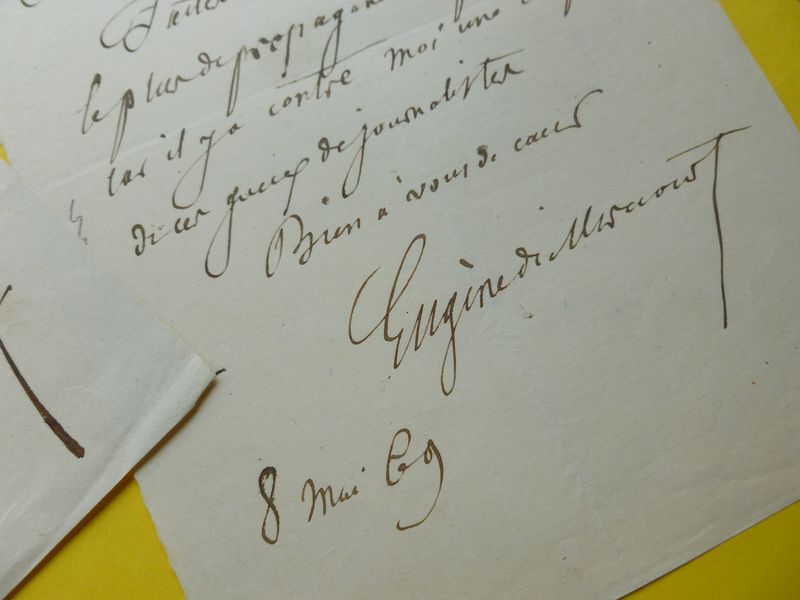 Faites
le plus de propagan
car il y a contre moi une
de ces gueux de journalistes
Bien à vous de cœur
Eugène de Mirecourt
8 Mai 69